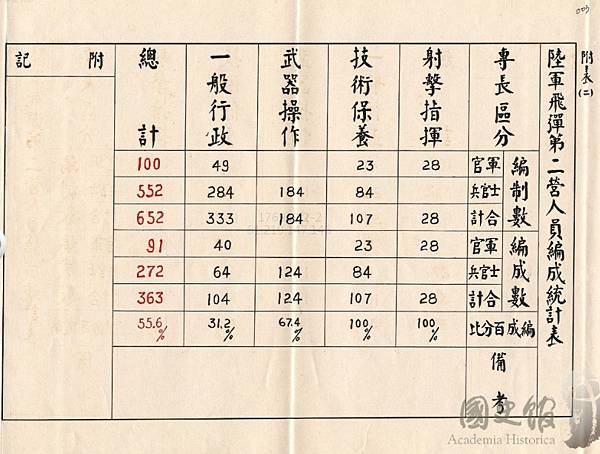 附表(二)
陸軍飛彈第二營人員編成統計表
專長區分 射擊指揮 技術保養 武器操作 一般行政 總計 附記
編制數
軍官 28 23 49 100
士官兵 84 184 284 552
合計 28 107 184 333 652
編成數
軍官 28 23 40 91
士官兵 84 124 64 272
合計 28 107 124 104 363
編成百分比 100% 100% 67.4% 31.2% 55.6%
備考
國史館
Academia Historica